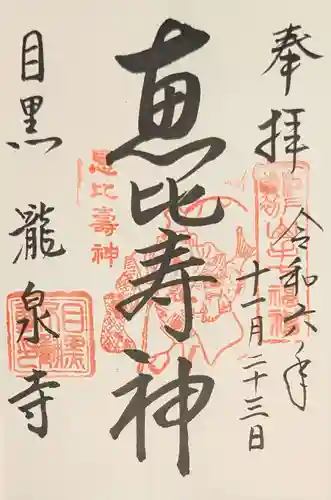 奉拝
令和六年
十一月二十三日
恵比寿神
恩比壽神
目黒 瀧泉寺